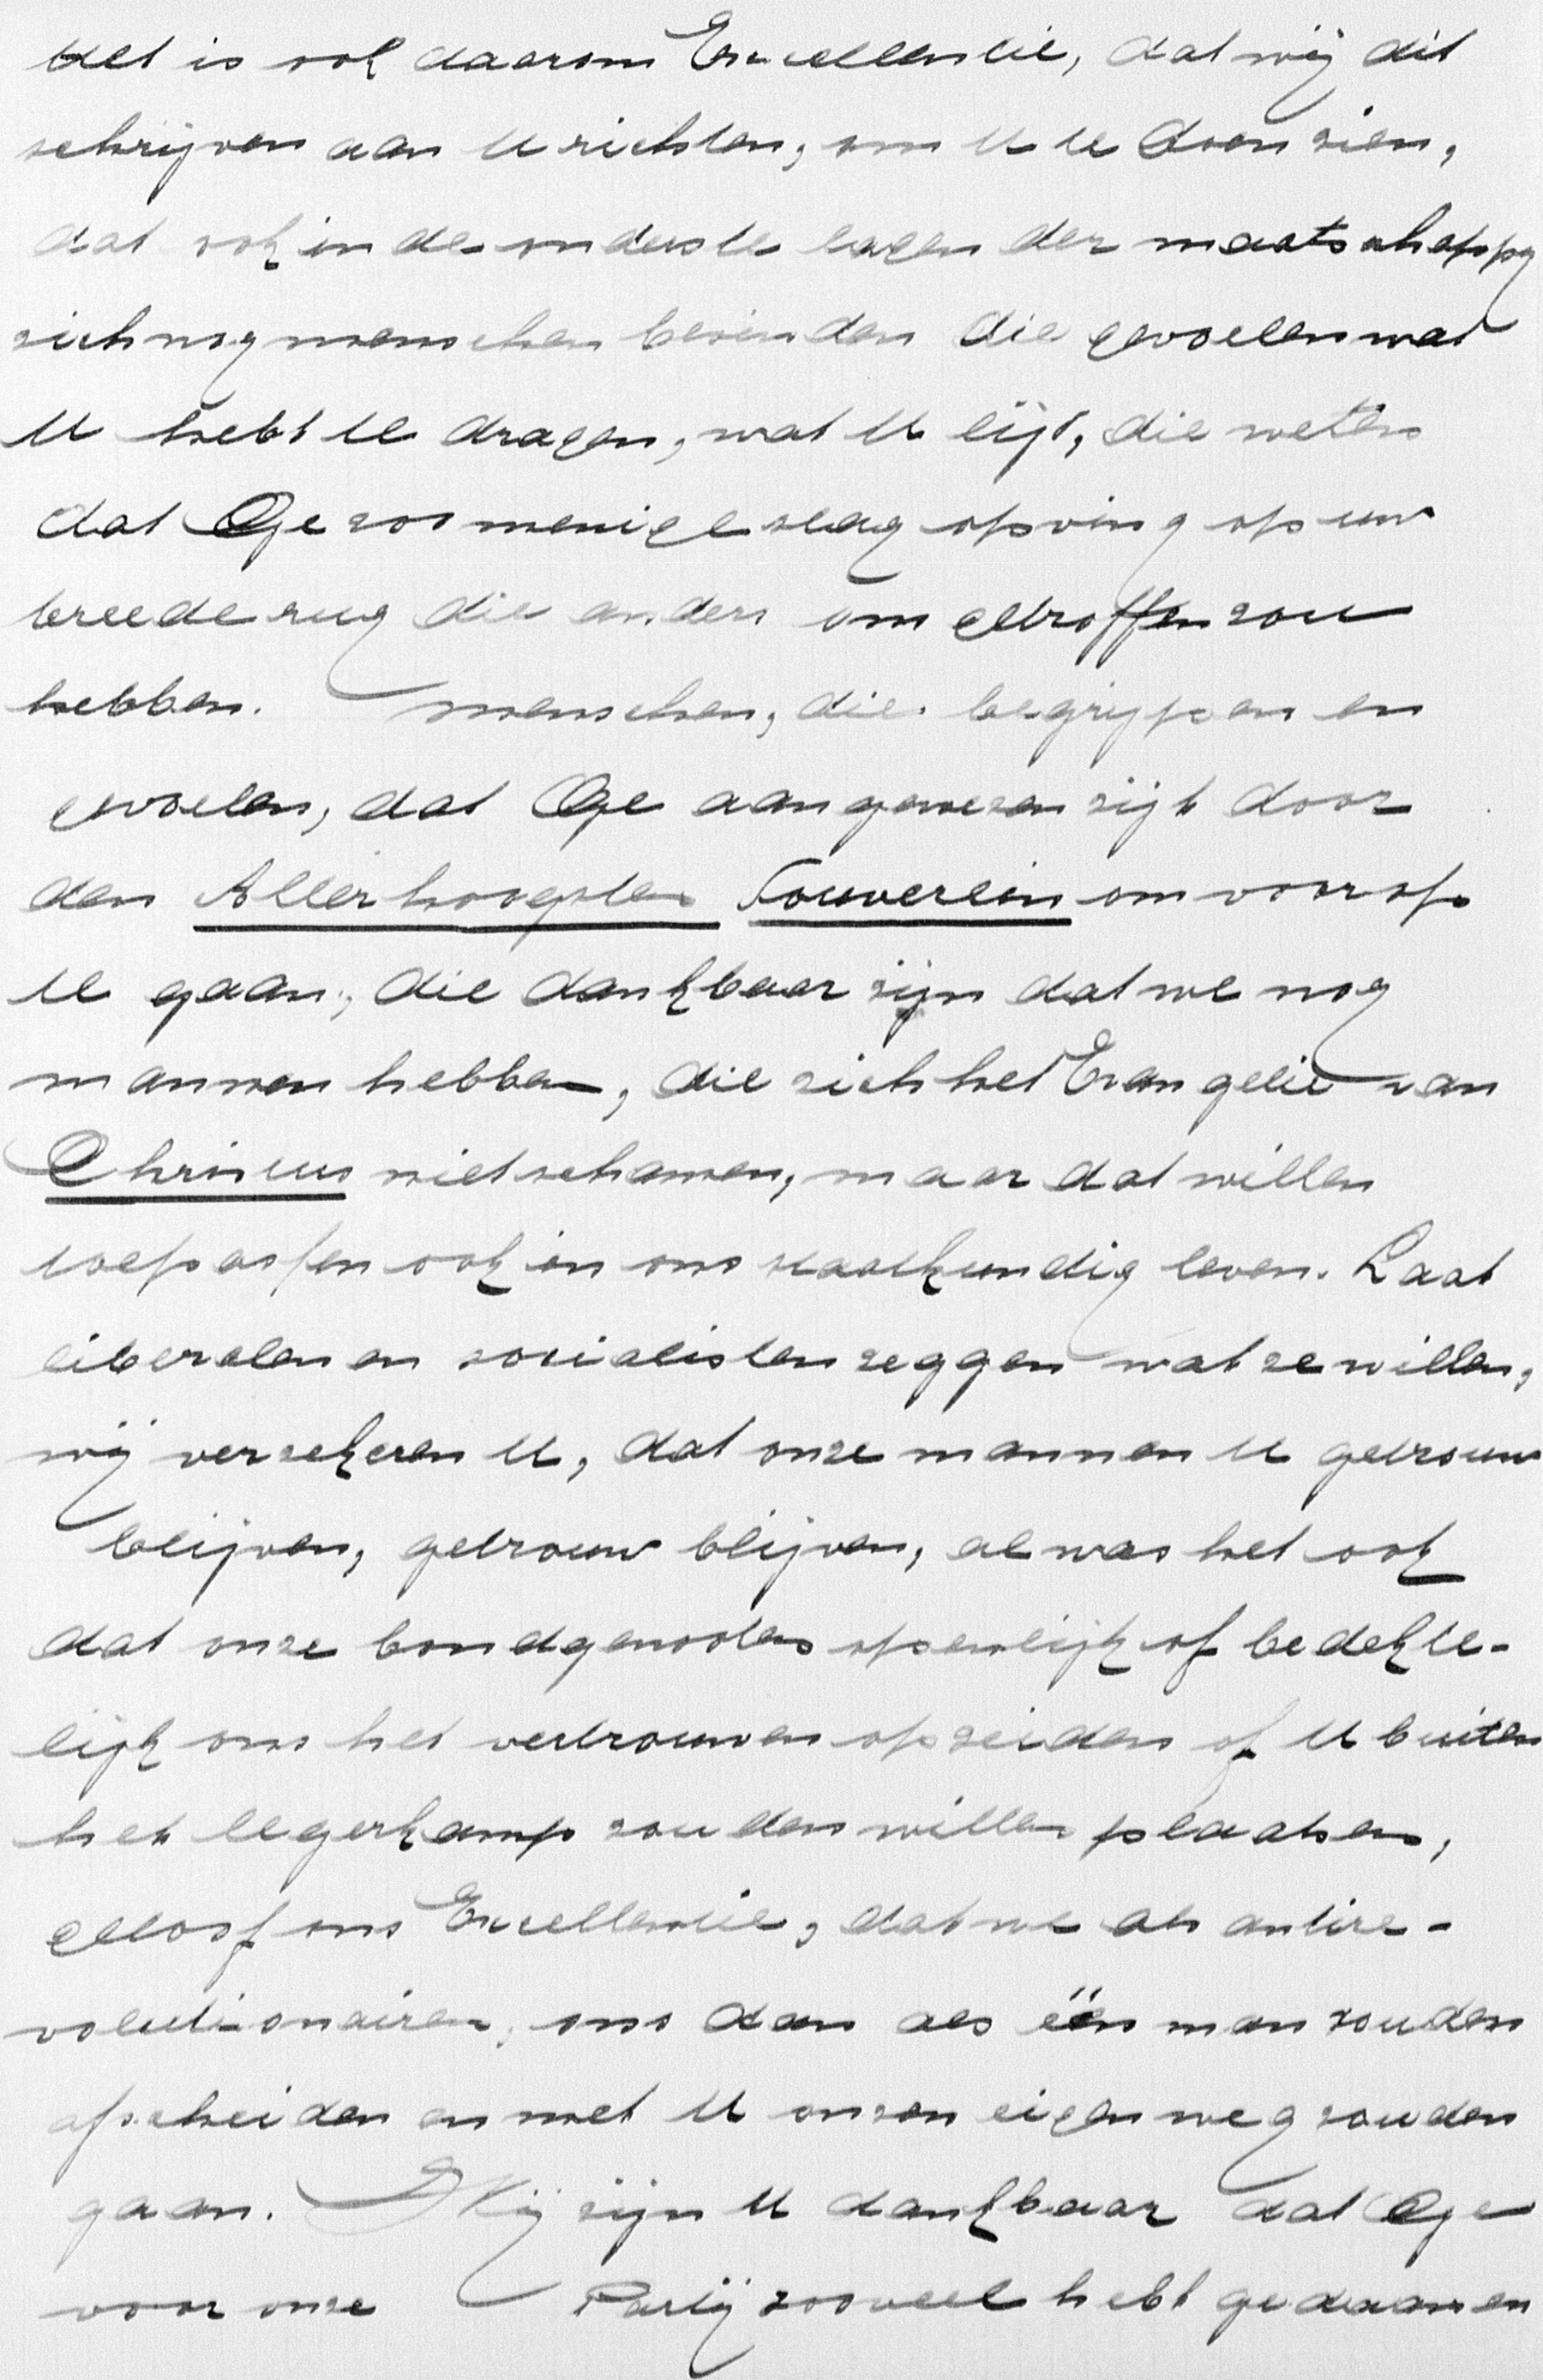 Het is ook daarom Excellentie, dat wij dit
schrijven aan U richten, om U te doen zien,
dat ook in de onderste lagen der maatschappij
zich nog menschen bevinden die gevoelen wat
U hebt te dragen, wat U lijt, die weten
dat Gje zoo menige slag opving op uw
breede rug die anders om getroffen zou
hebben. menschen, die begrijpen en
gevoelen, dat Gje aangewezen zijt door
den Allerhoogsten Souverein om voorop
te gaan, die dankbaar zijn dat we nog
mannen hebben, die zich het Evangelie van
Christus niet schamen, maar dat willen
toepassen ook in ons staatkundig leven. Laat
liberalen en socialisten zeggen wat ze willen,
wij verzekeren U, dat onze mannen U getrouw
blijven, getrouw blijven, al was het ook
dat onze bondgenooten openlijk of bedekte-
lijk ons het vertrouwen opzeiden of U buiten
het legerkamp zouden willen plaatsen,
geloof ons Excellentie, dat we als antire-
volutionairen, ons dan als één man zouden
afscheiden en met U onzen eigen weg zouden
gaan. Wij zijn U dankbaar dat Gje
voor onze Partij zooveel hebt gedaan en